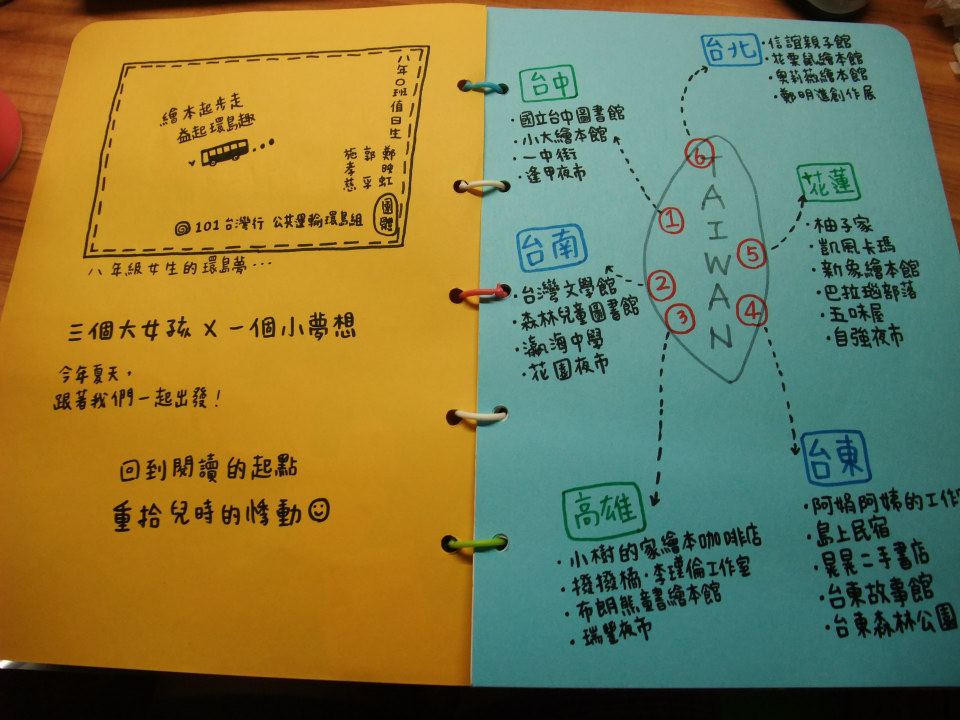 八年〇班值日生
繪本起步走
益起環島趣
鄭映虹
郭采
施孝慈
101台灣行 公共運輸環島組
團體
八年級女生的環島夢…
三個大女孩 x 一個小夢想
今年夏天，
跟著我們一起出發！
回到閱讀的起點
重拾兒時的悸動
台北
·信誼親子館
·花栗鼠繪本館
·奧莉薇繪本館
·鄭明進創作展
台中
·國立台中圖書館
·小大繪本館
·一中街
·逢甲夜市
花蓮
·柚子家
·凱風卡瑪
·新象繪本館
·巴拉瑙部落
·五味屋
·自強夜市
台南
·台灣文學館
·森林兒童圖書館
·瀛海中學
·花園夜市
TAIWAN
6
1
5
2
3
4
高雄
·小樹的家繪本咖啡店
·撥撥橘·李瑾倫工作室
·布朗熊童書繪本館
·瑞豐夜市
台東
·阿娟阿姨的工作
·島上民宿
·晃晃二手書店
·台東故事館
·台東森林公園